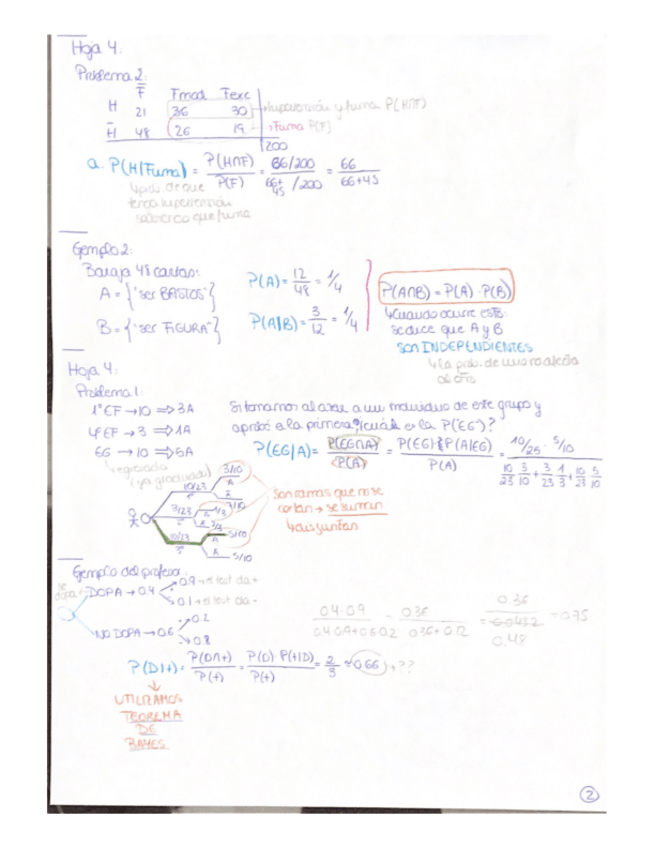 Hoja 4:
Problema 2:
F̄ Fmod Fexc
H 21 36 30 → hipertensión y fuma P(H∩F)
H̄ 48 26 19 → Fuma P(F)
200
a. P(H|Fuma) = P(H∩F) / P(F) = 66/200 / 66+45/200 = 66 / 66+45
↳ prob. de que
tenga hipertensión
sabiendo que fuma
Ejemplo 2:
Baraja 48 cartas:
A = {"ser BASTOS"}
B = {"ser FIGURA"}
P(A) = 12/48 = 1/4
P(A|B) = 3/12 = 1/4
P(A∩B) = P(A) · P(B)
↳ Cuando ocurre esto
se dice que A y B
son INDEPENDIENTES
↳ la prob. de uno no afecta
al otro
Hoja 4:
Problema 1:
1º EF → 10 ⇒ 3A
4º EF → 3 ⇒ 1A
EG → 10 ⇒ 5A
↳ egresado
(ya graduado)
Si tomamos al azar a un individuo de este grupo y
aprobó a la primera ¿cuál es la P("EG")?
P(EG|A) = P(EG∩A) / P(A) = P(EG) P(A|EG) / P(A) = 10/25 · 5/10 / 10/23 3/10 + 3/23 1/3 + 10/23 5/10
10/23 3/10 A
3/23 1/3 7/10
2/3
10/23 5/10 A
5/10
Son ramas que no se
cortan → se suman
↳ disjuntas
Ejemplo del profesor:
se dopa
DOPA → 0.4 0.9 → el test da +
0.1 → el test da -
NO DOPA → 0.6 0.2
0.8
0.4·0.9 / 0.4·0.9+0.6·0.2 = 0.36 / 0.36+0.12 = 0.36 / 0.48 = 0.75
P(D|+) = P(D∩+) / P(+) = P(D)·P(+|D) / P(+) = 2/3 ≈ 0.66 → ??
↓
UTILIZAMOS
TEOREMA
DE
BAYES
2